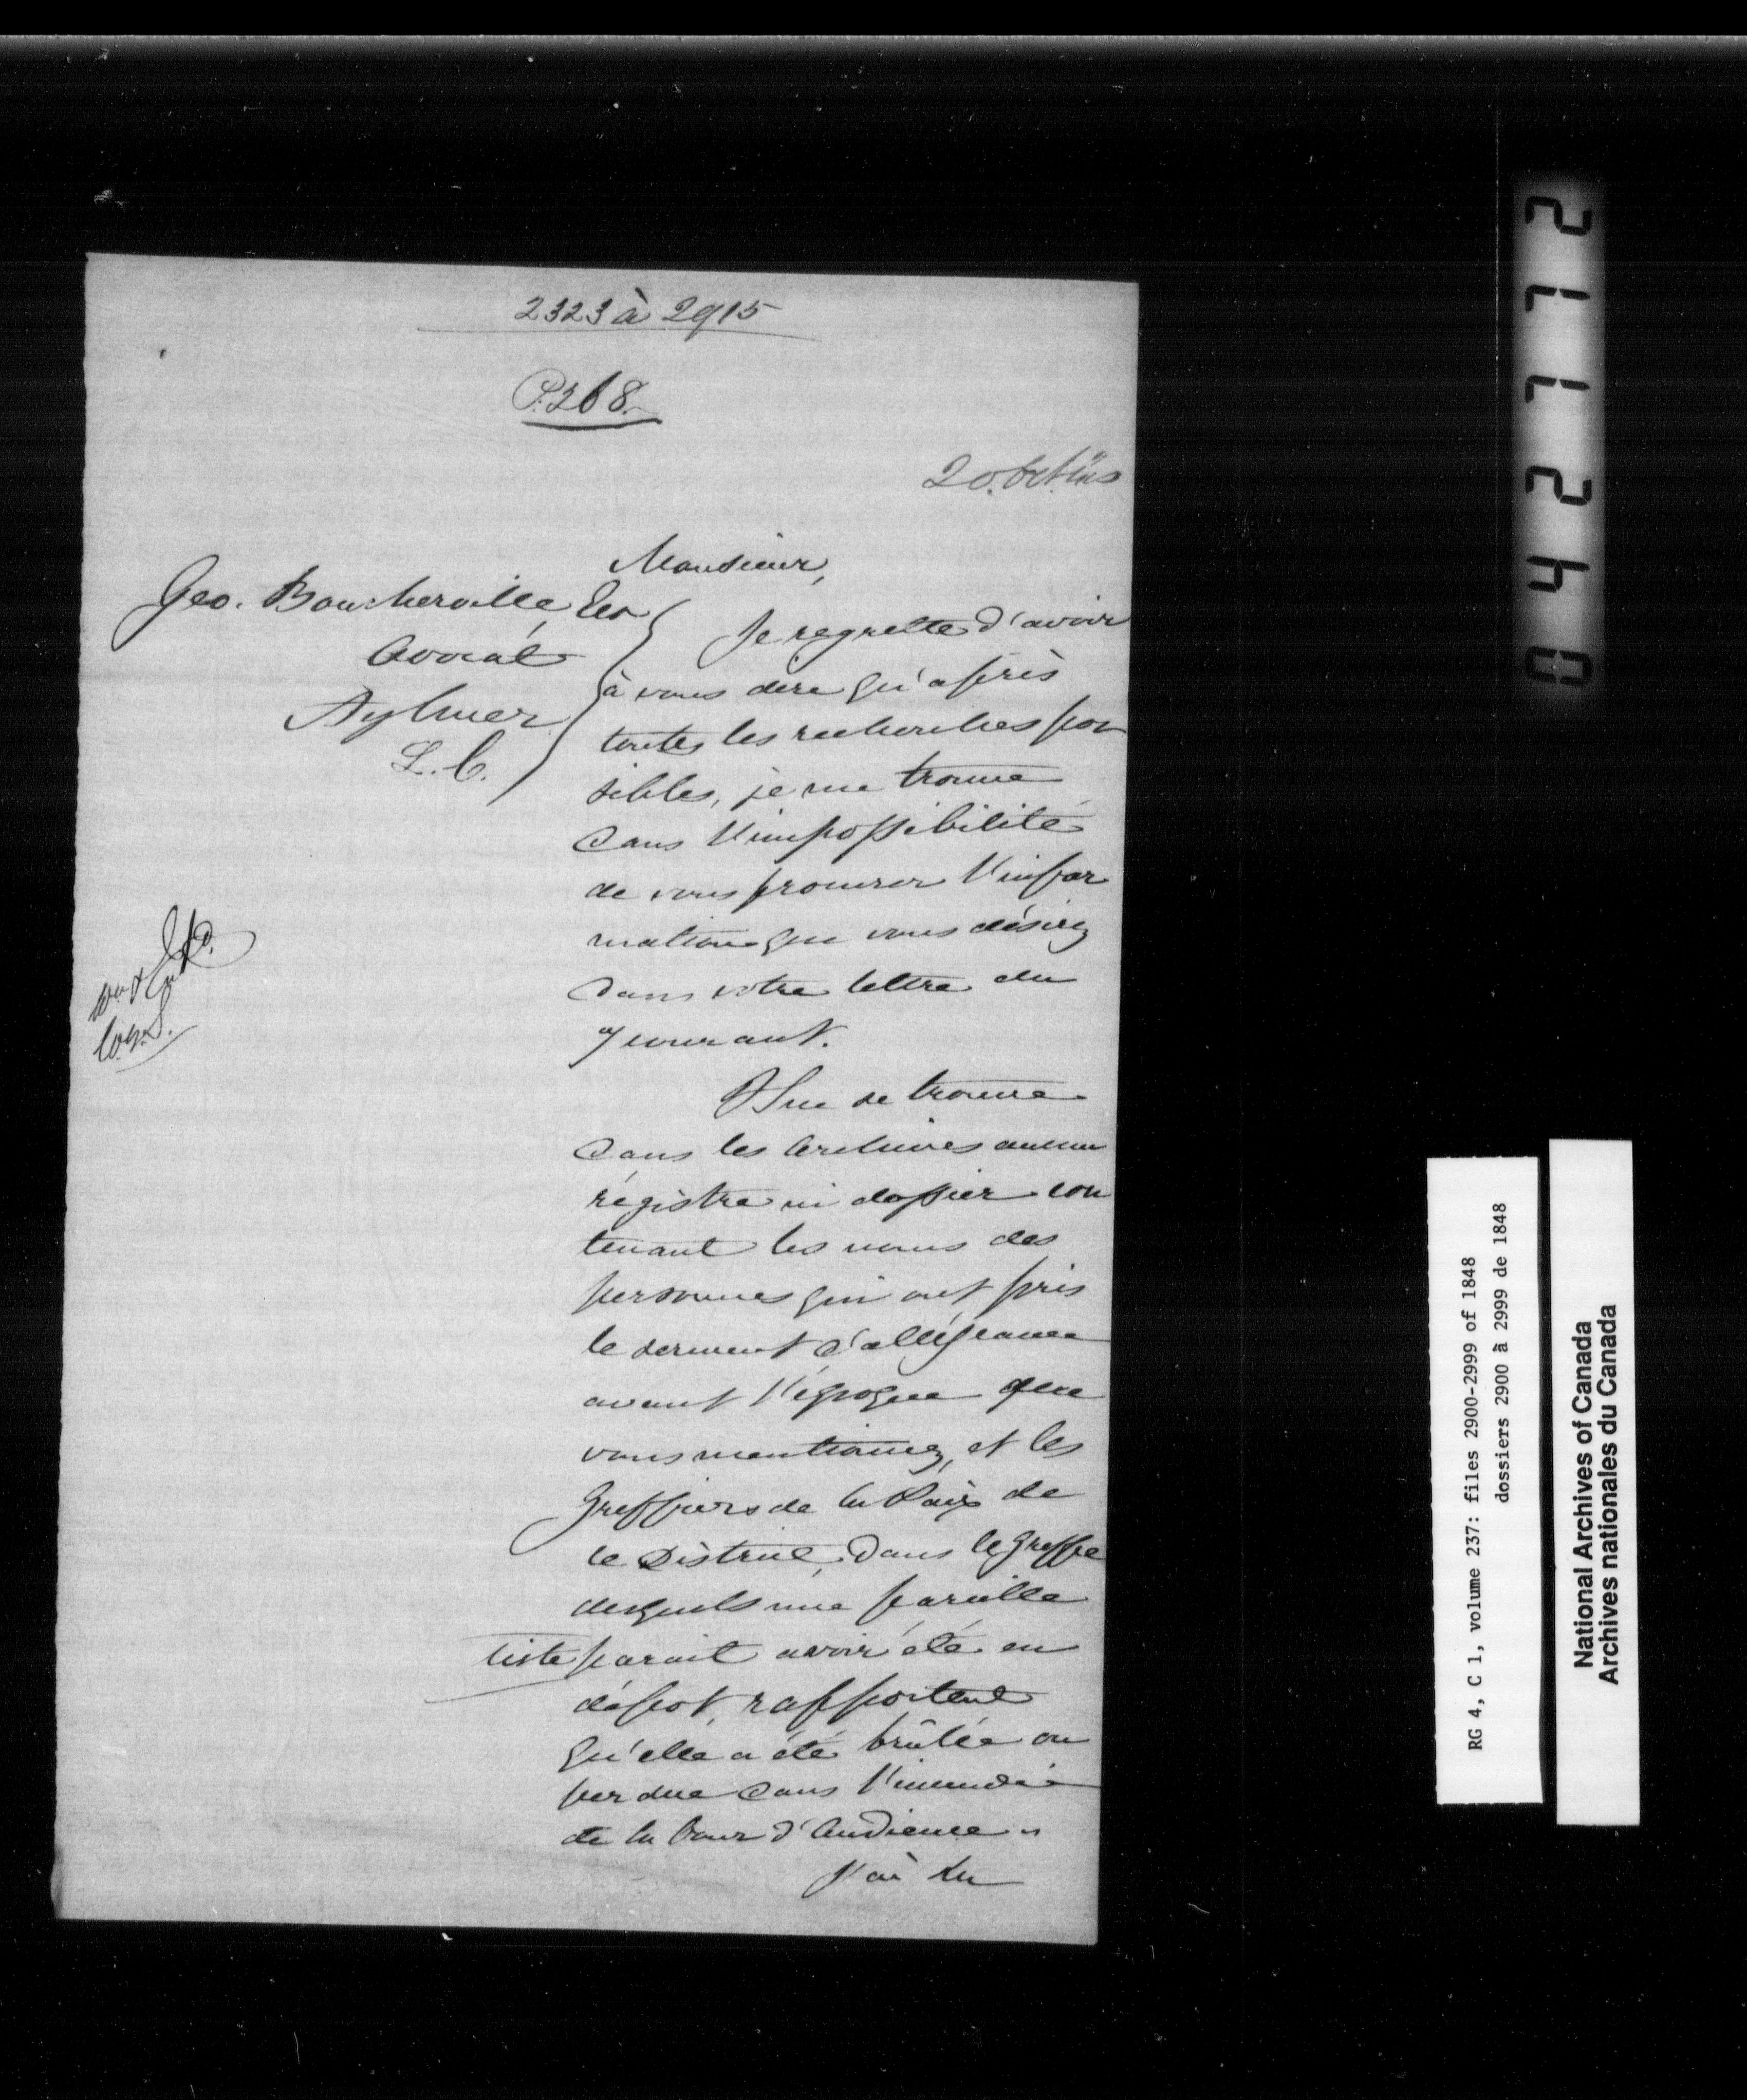 2323 à 2915
P.368.
20. Oct.
Monsieur,
Geo. Boucherville,
Avocat
Aylmer
L.C.
Je regrette d'avoir
à vous dire qu'après
toutes les recherches pos
sibles, je me trouve
dans l'impossibilité
de vous procurer l'infor
mation que vous désirez
dans votre lettre du
7 courant.
Il ne se trouve
dans les Archives aucun
régistre ni dossier con
tenant les noms des
personnes qui ont pris
le serment d'allégeance
avant l'époque que
vous mentionnez, et les
Greffiers de la Paix de
ce District, dans le Greffe
desquels une pareille
liste parait avoir été en
dépot, rapportent
qu'elle a été brûlée ou
perdue dans l'incendie
de la Cour d'Audience.
J'ai &c
042772
RG 4, C 1, volume 237: files 2900-2999 of 1848
dossiers 2900 à 2999 de 1848
National Archives of Canada
Archives nationales du Canada